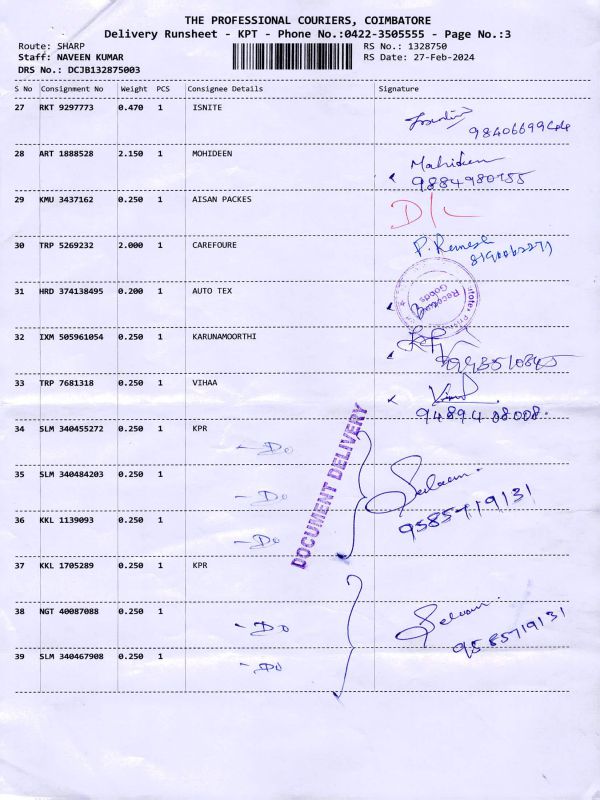 THE PROFESSIONAL COURIERS, COIMBATORE
Delivery Runsheet - KPT - Phone No.:0422-3505555 - Page No.:3
Route: SHARP
RS No.: 1328750
Staff: NAVEEN KUMAR
RS Date: 27-Feb-2024
DRS No.: DCJB132875003
S No Consignment No Weight PCS Consignee Details Signature
27 RKT 9297773 0.470 1 ISNITE
28 ART 1888528 2.150 1 MOHIDEEN Mahideen
9884980755
29 KMU 3437162 0.250 1 AISAN PACKES D/L
30 TRP 5269232 2.000 1 CAREFOURE P. Ramesh
31 HRD 374138495 0.200 1 AUTO TEX
Goods
32 IXM 505961054 0.250 1 KARUNAMOORTHI
33 TRP 7681318 0.250 1 VIHAA
94894 08008.
34 SLM 340455272 0.250 1 KPR
-Do
DOCUMENT DELIVERY
35 SLM 340484203 0.250 1
-Do
Selvam.
9585719131
36 KKL 1139093 0.250 1
-Do
37 KKL 1705289 0.250 1 KPR
38 NGT 40087088 0.250 1
-Do
Selvam.
9585719131
39 SLM 340467908 0.250 1
-Do